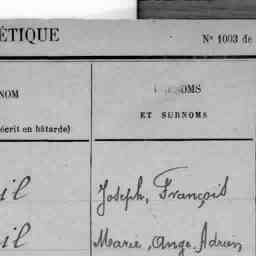 ÉTIQUE
N° 1003 de
NOM
PRÉNOMS
écrit en bâtarde)
ET SURNOMS
il
Joseph, François
il
Marie, Ange, Adrien